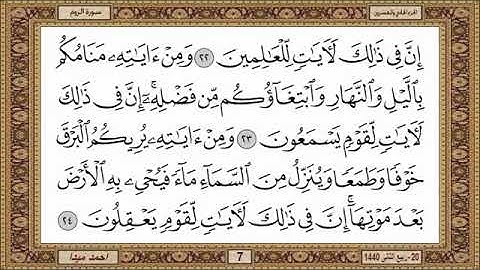 الجزء الحادي والعشرين
سورة الروم
إِنَّ فِى ذَٰلِكَ لَءَايَٰتٍ لِّلْعَٰلِمِينَ ٢٢ وَمِنْ ءَايَٰتِهِۦ مَنَامُكُم
بِٱلَّيْلِ وَٱلنَّهَارِ وَٱبْتِغَآؤُكُم مِّن فَضْلِهِۦٓ ۚ إِنَّ فِى ذَٰلِكَ
لَءَايَٰتٍ لِّقَوْمٍ يَسْمَعُونَ ٢٣ وَمِنْ ءَايَٰتِهِۦ يُرِيكُمُ ٱلْبَرْقَ
خَوْفًا وَطَمَعًا وَيُنَزِّلُ مِنَ ٱلسَّمَآءِ مَآءً فَيُحْىِۦ بِهِ ٱلْأَرْضَ
بَعْدَ مَوْتِهَآ ۚ إِنَّ فِى ذَٰلِكَ لَءَايَٰتٍ لِّقَوْمٍ يَعْقِلُونَ ٢٤
20- ربيع الثاني 1440
7
احمد ميشا